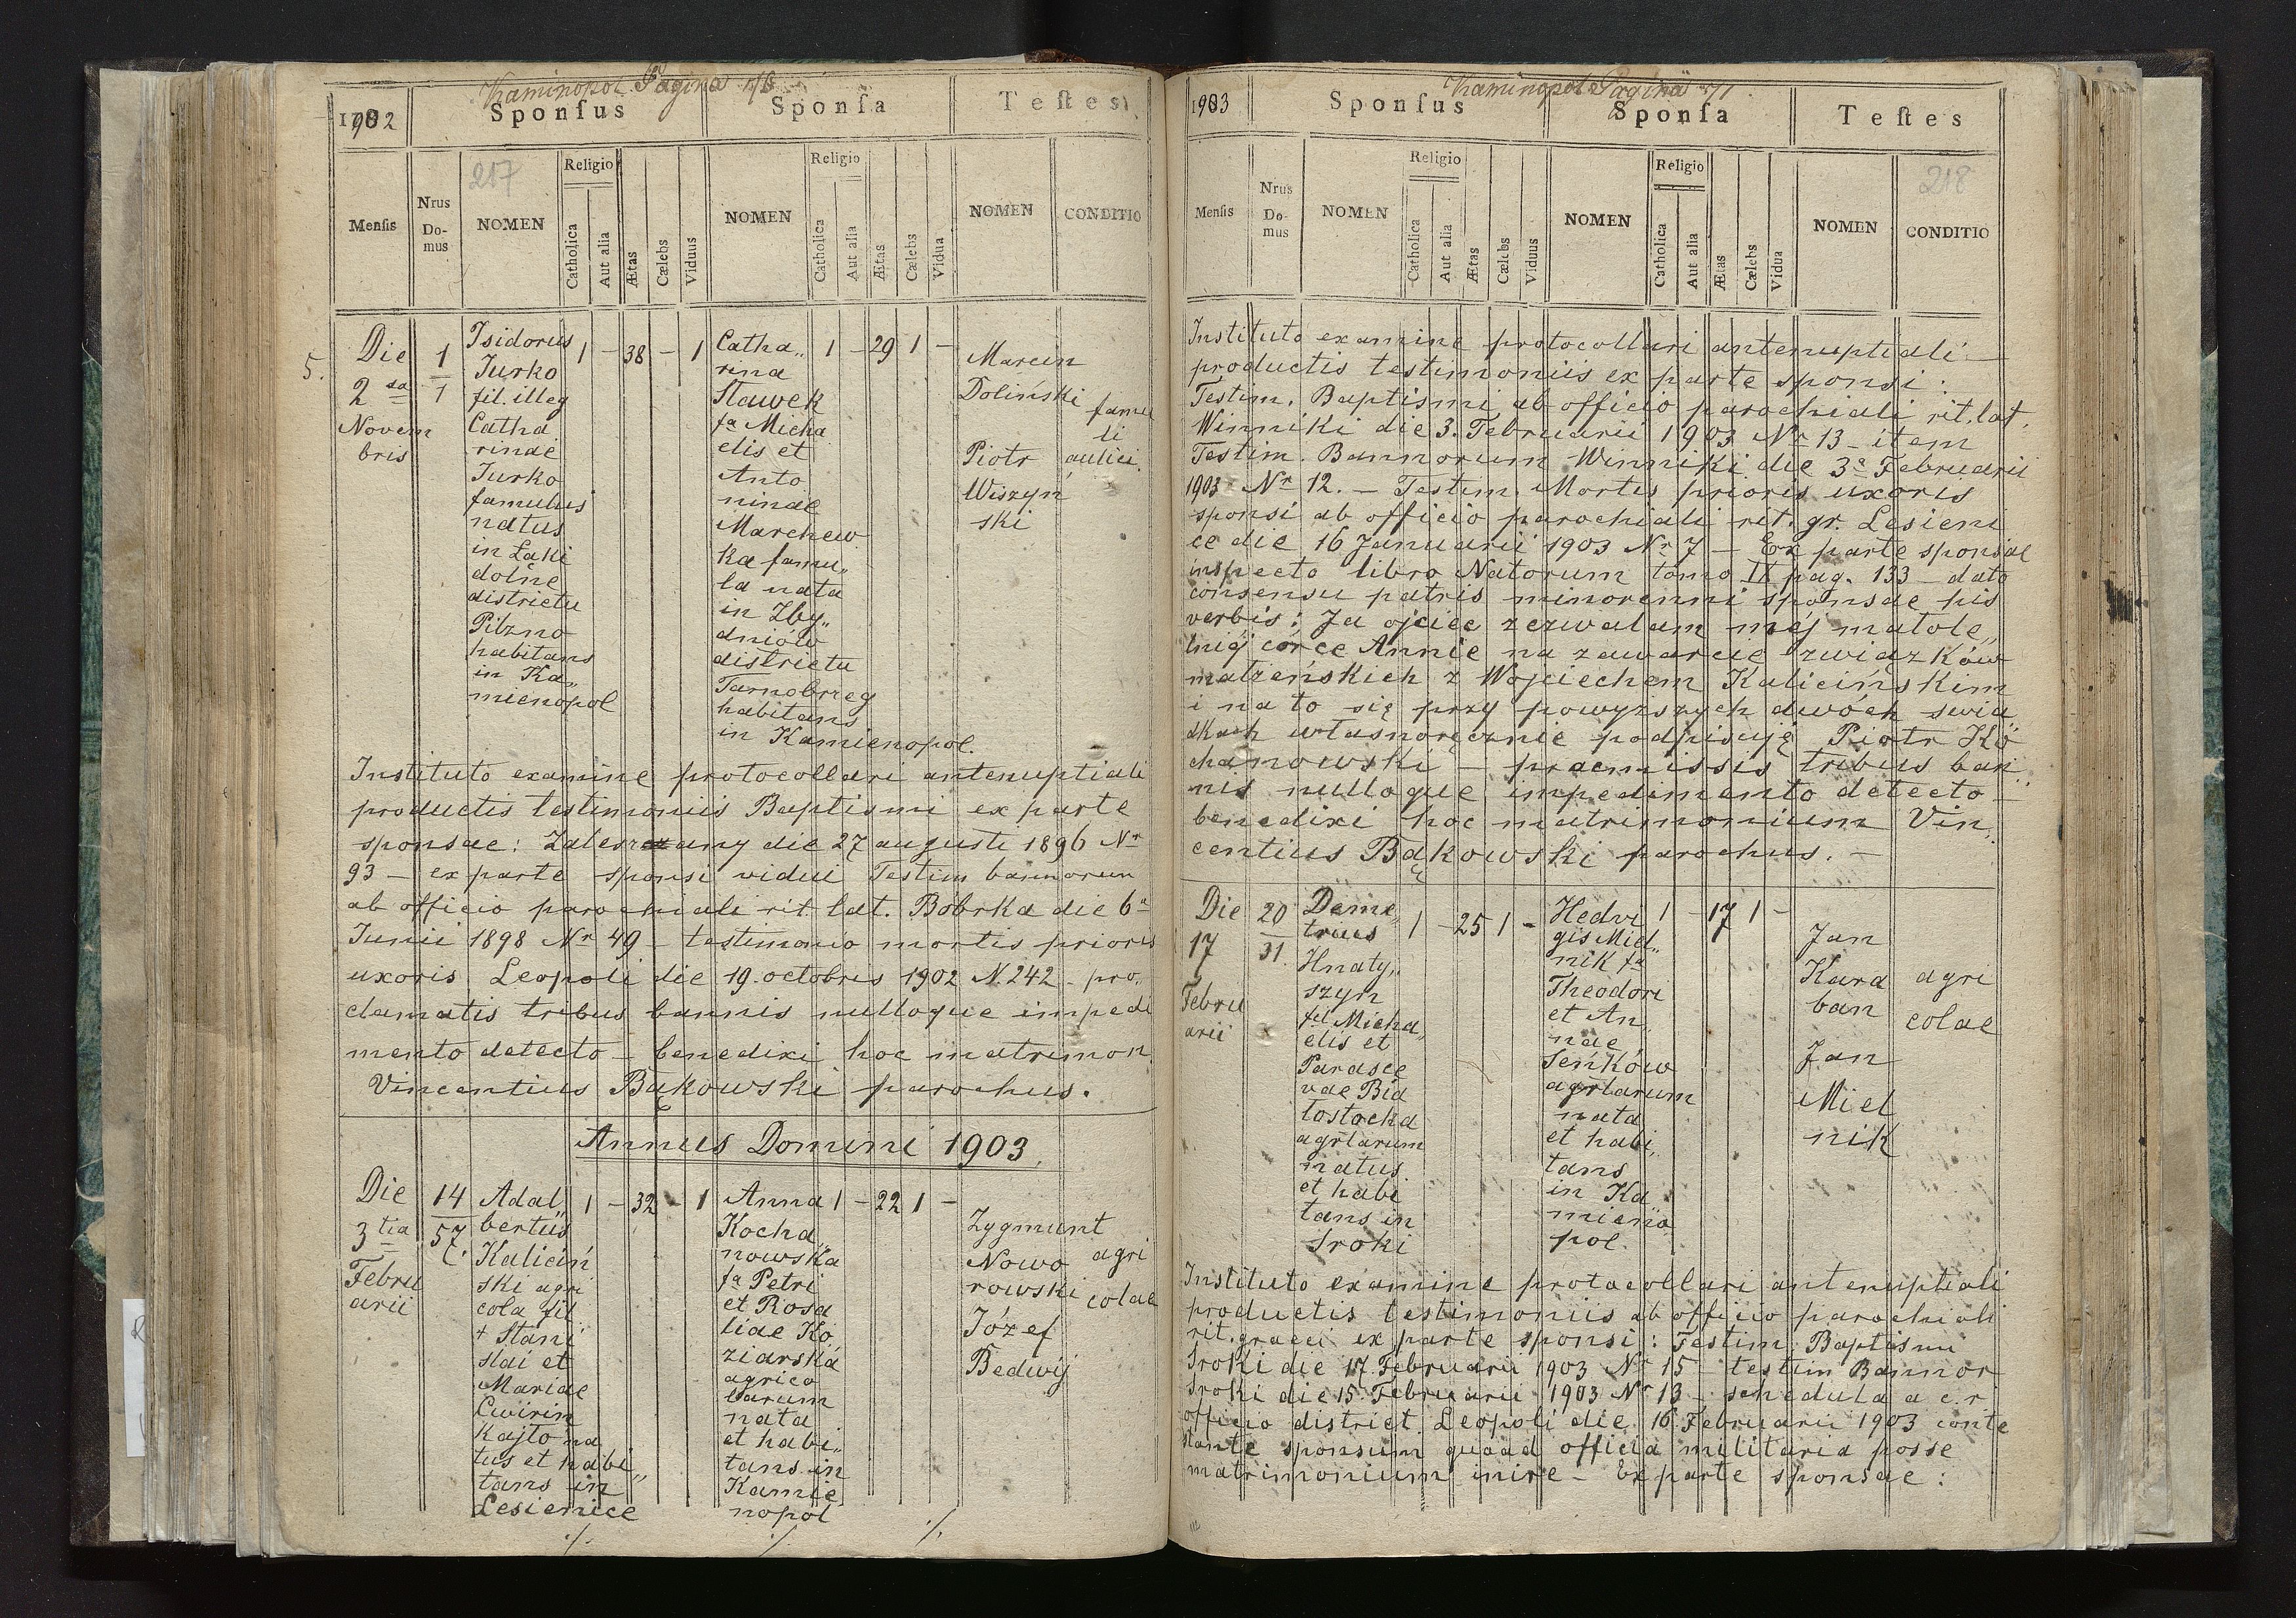 Kaminopol Pagina
1902
Sponsus
Sponsa
Testes
Mensis
Nrus Domus
217
NOMEN
Religio
Catholica
Aut alia
Ætas
Cælebs
Viduus
NOMEN
Religio
Catholica
Aut alia
Ætas
Cælebs
Vidua
NOMEN
CONDITIO
5.
Die
2 da
Novem
bris
1
1
Isidorus
Jurko
fil. illeg
Catha
rinae
Jurko
famulus
natus
in Łaki
dolne
districtu
Pilzno
habitans
in Ka„
mienopol
1 – 38 – 1
Catha„
rina
Sławek
fa Micha
elis et
Anto
ninae
Marchew
ka famu„
la nata
in Zby„
dniów
districtu
Tarnobrzeg
habitans
in Kamienopol.
1 – 29 1 –
Marcin
Doliński
Piotr
Wiszyń
ski
famu
li
aulici
Instituto examine protocollari antenuptiali
productis testimoniis Baptismi ex parte
sponsae: Zaleszany die 27 augusti 1896 Nr
93 – ex parte sponsi vidui Testim bannorum
ab officio parochiali rit lat. Bóbrka die 6a
Junii 1898 Nr 49 – testimonio mortis prioris
uxoris Leopoli die 19. octobris 1902 N. 242 – pro„
clamatis tribus bannis nulloque impedi
mento detecto – benedixi hoc matrimon.
Vincentius Bąkowski parochus.
Annus Domini 1903.
Die
3 tia
Febru
arii
14
57.
Adal„
bertus
Kaliciń
ski agri
cola fil
+ Stani
slai et
Mariae
Cwirin
Kajto na
tus et habi„
tans in
Lesienice
1 – 32 – 1
Anna
Kocha„
nowska
fa Petri
et Rosa
liae Ko
ziarska
agrico
larum
nata
et habi„
tans in
Kamie
nopol
1 – 22 1 –
Zygmunt
Nowo
rowski
Józef
Bedwij
agri
colae
./. ./. ./.
Kaminopol Pagina 71
1903
Sponsus
Sponsa
Testes
Mensis
Nrus Domus
NOMEN
Religio
Catholica
Aut alia
Ætas
Cælebs
Viduus
NOMEN
Religio
Catholica
Aut alia
Ætas
Cælebs
Vidua
NOMEN
218
CONDITIO
Instituto examine protocollari antenuptiali –
productis testimoniis ex parte sponsi:
Testim. Baptismi ab officio parochiali rit. lat.
Winniki die 3. Februarii 1903 Nr 13 – item
Testim. Bannorum Winniki die 3a Februarii
1903 Nr 12. – Testim. Mortis prioris uxoris
sponsi ab officio parochiali rit. gr. Lesieni
ce die 16 Januarii 1903 Nr 7 – Ex parte sponsae
inspecto libro Natorum tomo II pag. 133 – dato
consensu patris minorenni sponsae his
verbis: Ja ojciec zezwalam mej małole„
tniéj córce Annie na zawarcie związków
małżeńskich z Wojciechem Kalicińskim
i na to się przy powyższych dwóch świa
dkach własnoręcznie podpisuję Piotr Ko
chanowski – praemissis tribus ban
nis nulloque impedimento detecto –
benedixi hoc matrimonium Vin„
centius Bąkowski parochus. –
Die
17
Febru
arii
20
31
Deme„
trius
Hnaty„
szyn
fil Micha„
elis et
Parasce
vae Bia
łostocka
agrlarum
natus
et habi
tans in
Sroki
1 – 25 1 –
Hedvi
gis Miel„
nik fa
Theodori
et An„
nae
Seńków
agrlarum
nata
et habi„
tans
in Ka
mieno
pol.
1 – 17 1 –
Jan
Kara
ban
Jan
Miel
nik
agri
colae
Instituto examine protocollari antenuptiali
productis testimoniis ab officio parochiali
rit. graeci ex parte sponsi: Testim. Baptismi
Sroki die 17 Februarii 1903 Nr 15 – testim Bannor
Sroki die 15. Februarii 1903 Nr 13 – schedula a c. r.
officio district. Leopoli die 16. Februarii 1903 conte
stante sponsum quoad officia militaria posse
matrimonium inire – Ex parte sponsae: